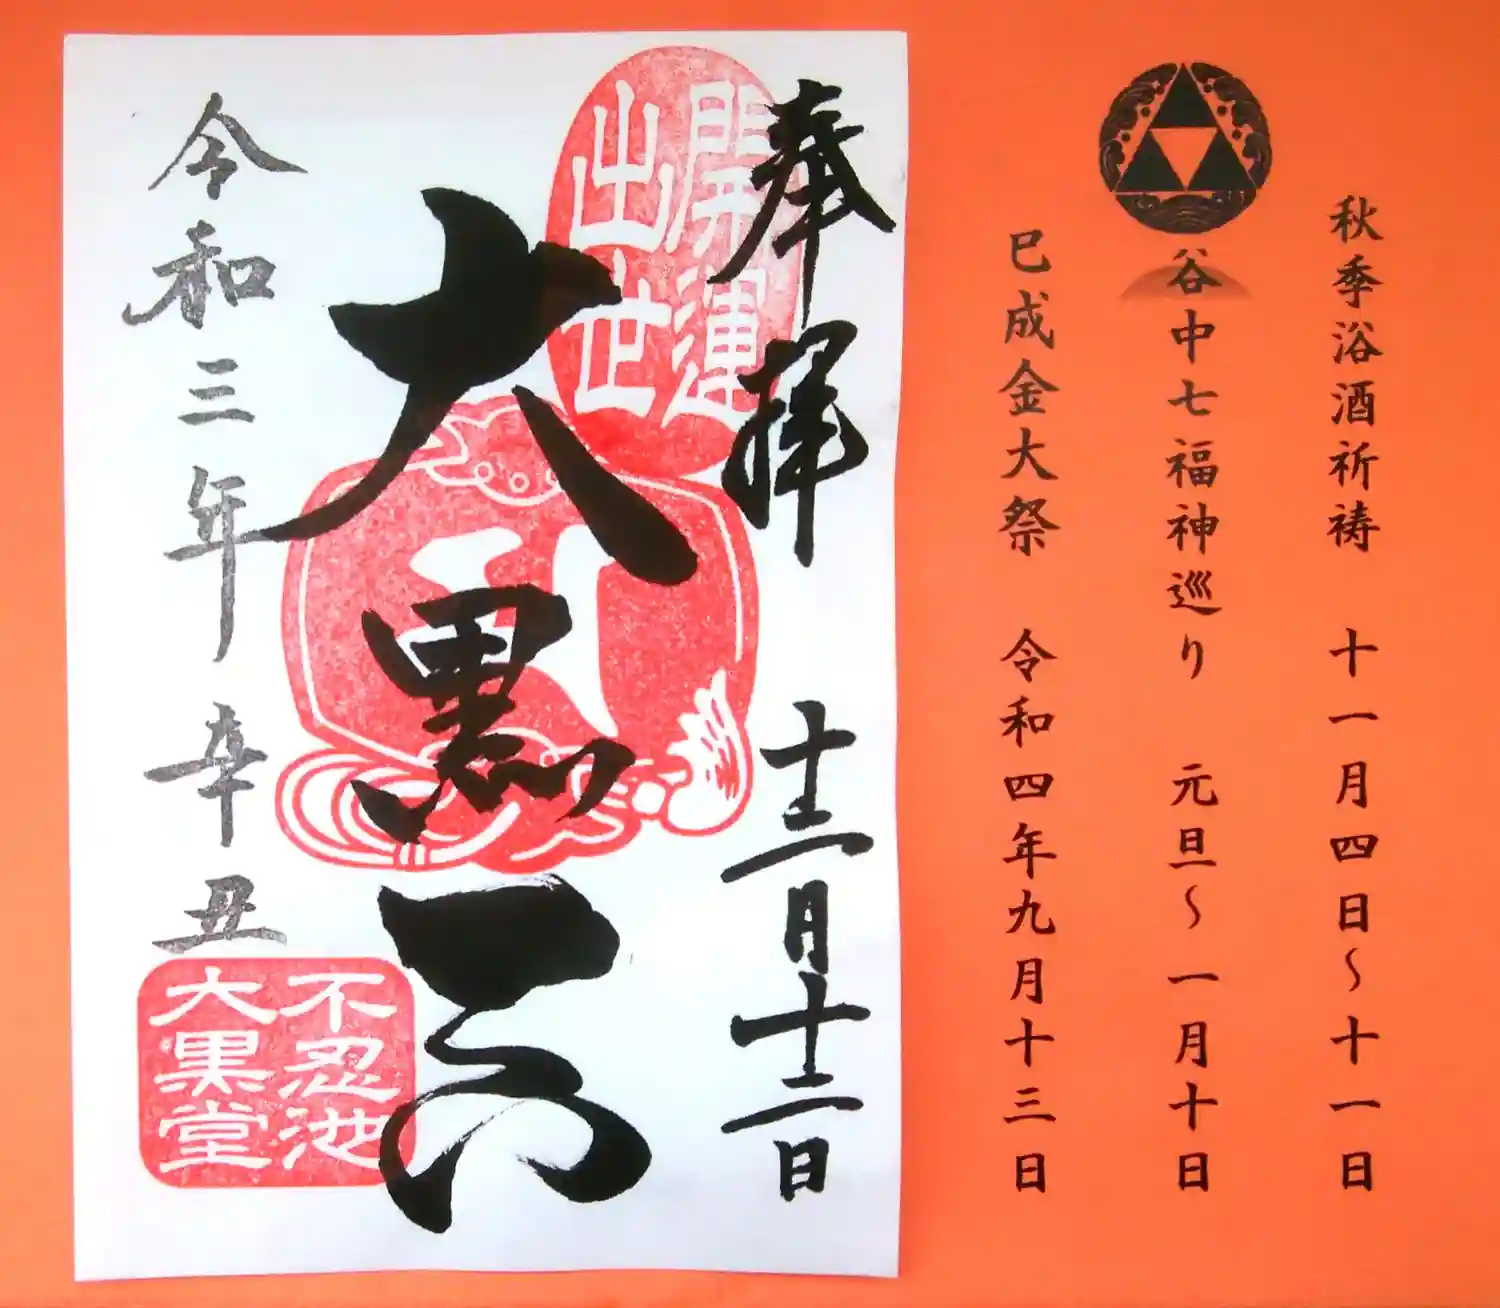 秋季浴酒祈祷　十一月四日〜十一日
谷中七福神巡り　元旦〜一月十日
巳成金大祭　令和四年九月十三日
奉拝　十二月十二日
開運
出世
大黒天
令和三年　辛丑
不忍池
大黒堂